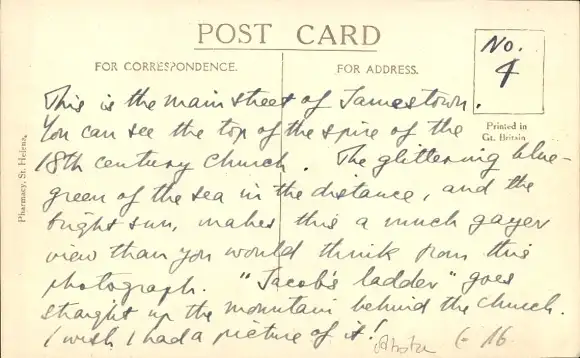 POST CARD
FOR CORRESPONDENCE.
FOR ADDRESS.
No.
4
Printed in
Gt. Britain
Pharmacy, St. Helena.
This is the main street of Jamestown.
You can see the top of the spire of the
18th century Church. The glittering blue-
green of the sea in the distance, and the
bright sun, makes this a much gayer
view than you would think from this
photograph. "Jacob's ladder" goes
straight up the mountain behind the church.
I wish I had a picture of it!